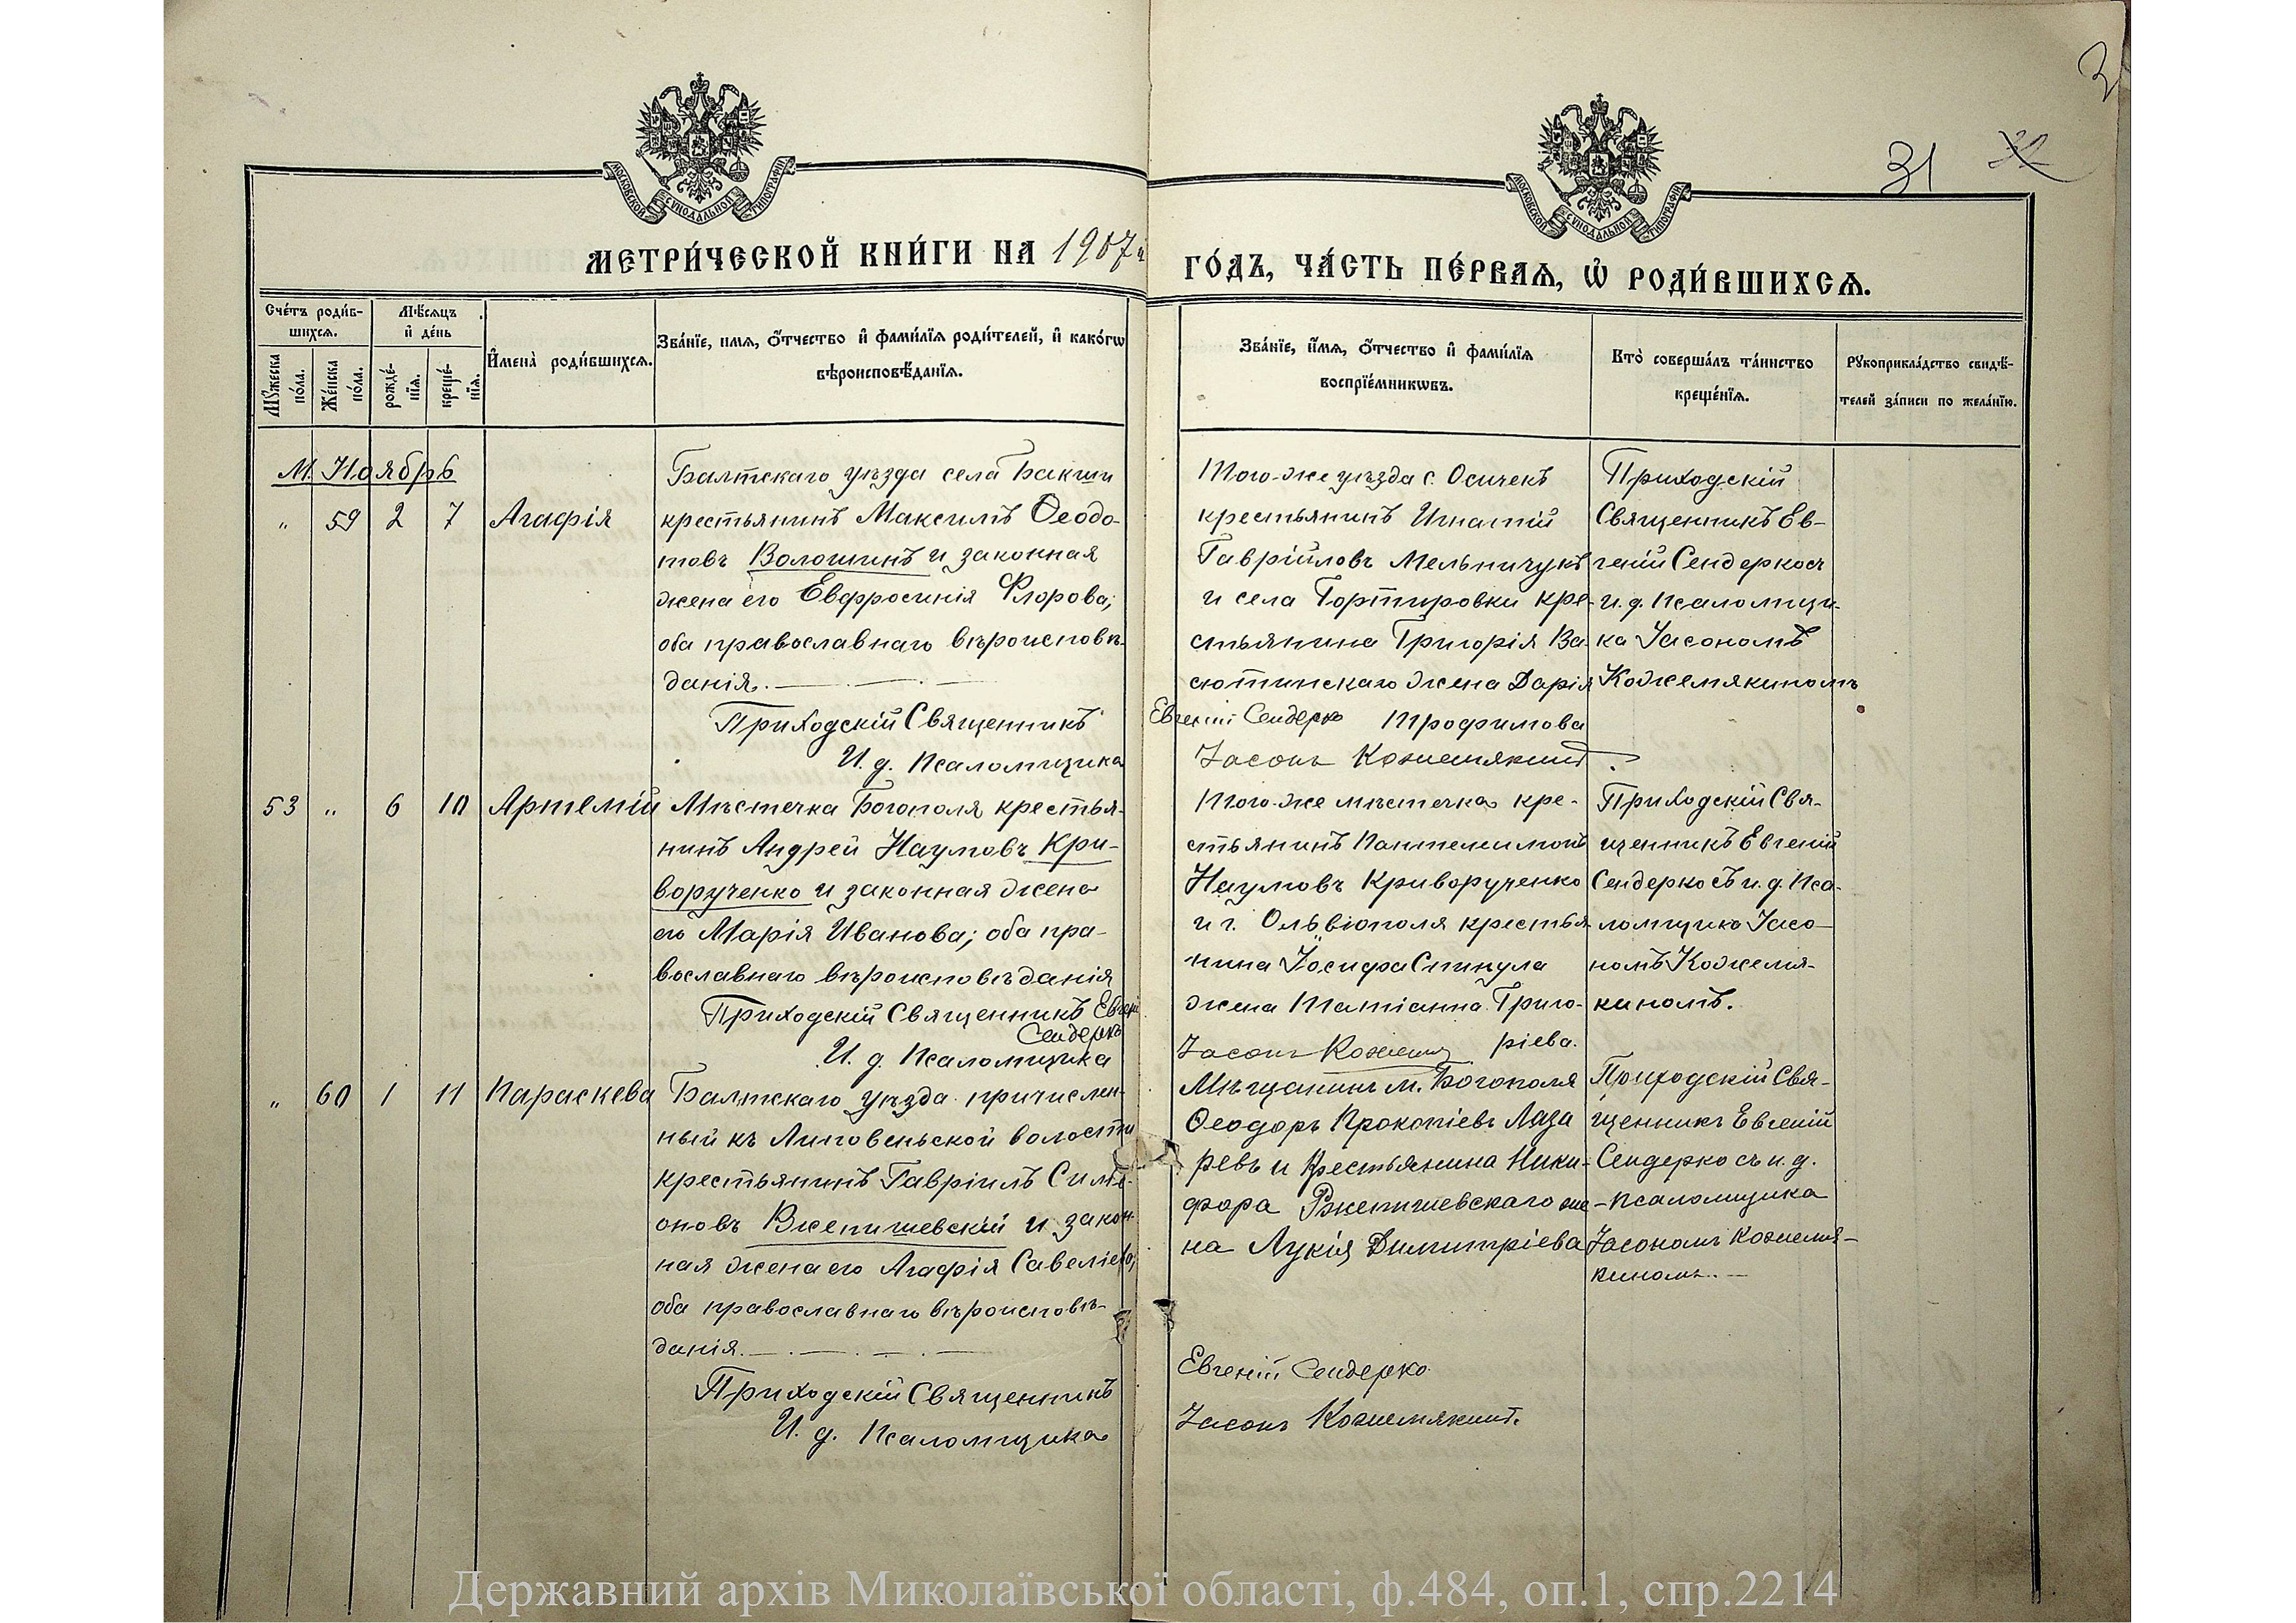 31
32
МОСКОВСКОЙ СѴНОДАЛЬНОЙ ТИПОГРАФІИ
МОСКОВСКОЙ СѴНОДАЛЬНОЙ ТИПОГРАФІИ
МЕТРИ́ЧЕСКОЙ КНИ́ГИ НА 1907й
ГО́ДЪ, ЧА́СТЬ ПЕ́РВАѦ, Ѡ҆ РОДИ́ВШИХСѦ.
Сче́тъ роди́в-
шихсѧ.
Мѣ́сѧцъ
и҆ де́нь
Мꙋ́жеска
по́ла.
Же́нска
по́ла.
рожде́-
нїѧ.
креще́-
нїѧ.
И҆мена̀ роди́вшихсѧ.
Зва́нїе, имѧ, ѻ҆́тчество и҆ фами́лїѧ роди́телей, и҆ како́гѡ
вѣроисповѣ́данїѧ.
Зва́нїе, и҆́мѧ, ѻ҆́тчество и҆ фами́лїѧ
воспрїе́мникѡвъ.
Кто̀ соверша́лъ та́инство
креще́нїѧ.
Рꙋкоприкла́дство свидѣ́-
телей за́писи по жела́нїю.
М. Ноябрь
" 59 2 7 Агафія
Балтскаго уѣзда села Бакши
крестьянинъ Максимъ Ѳеодо-
товъ Волошинъ и законная
жена его Евфросинія Флорова;
оба православнаго вѣроисповѣ-
данія.
Приходскій Священникъ
И. д. Псаломщика
Того-же уѣзда с. Осичекъ
крестьянинъ Игнатій
Гавріиловъ Мельничукъ
и села Гортировки кре-
стьянина Григорія Ва-
сютинскаго жена Дарія
Евгеній Сендерко Трофимова
Іасонъ Кожемякинъ
Приходскій
Священникъ Ев-
геній Сендерко съ
и. д. псаломщи-
ка Іасономъ
Кожемякиномъ
53 " 6 10 Артемій
Мѣстечка Богополя крестья-
нинъ Андрей Наумовъ Кри-
ворученко и законная жена
его Марія Иванова; оба пра-
вославнаго вѣроисповѣданія
Приходскій Священникъ Евгеній
Сендерко
И. д. Псаломщика
Того-же мѣстечка кре-
стьянинъ Пантелимонъ
Наумовъ Криворученко
и г. Ольвіополя крестья
нина Іосифа Спинула
жена Татіанна Григо-
Іасонъ Кожемяк ріева.
Приходскій Свя-
щенникъ Евгеній
Сендерко съ и. д. Пса-
ломщика Іасо-
номъ Кожемя-
киномъ.
" 60 1 11 Параскева
Балтскаго уѣзда причислен-
ный къ Липовеньской волости
крестьянинъ Гавріилъ Симе-
оновъ Вжепишевскій и закон
ная жена его Агафія Савеліева;
оба православнаго вѣроисповѣ-
данія.
Приходскій Священникъ
И. д. Псаломщика
Мѣщанинъ м. Богополя
Ѳеодоръ Прокопіевъ Лаза
ревъ и крестьянина Ники-
фора Вжепишевскаго же-
на Лукія Димитріева
Евгеній Сендерко
Іасонъ Кожемякинъ.
Приходскій Свя-
щенникъ Евгеній
Сендерко съ и. д.
псаломщика
Іасономъ Кожемя-
киномъ.
Державний архів Миколаївської області, ф.484, оп.1, спр.2214